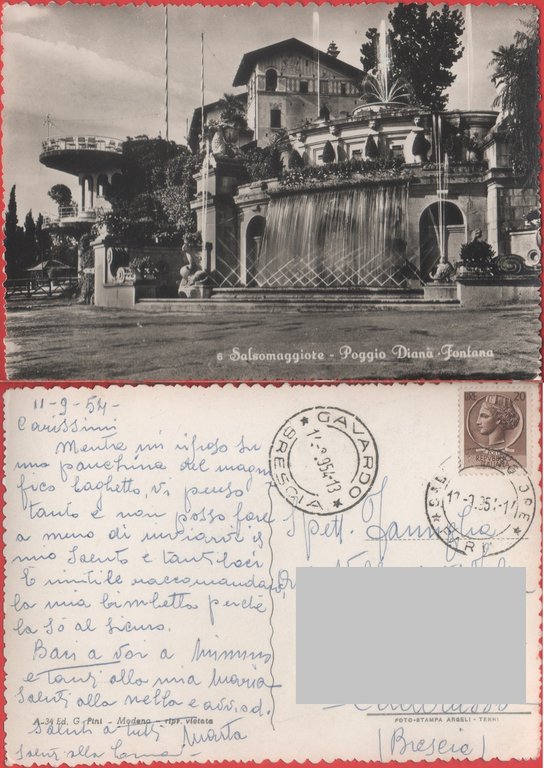 6 Salsomaggiore - Poggio Diana - Fontana
11-9-54-
Carissimi
Mentre mi riposo su
una panchina del magni
fico laghetto, vi penso
tanto e non posso fare
a meno di inviarvi il
mio saluto e tanti baci
È inutile raccomandarvi
la mia bimbetta perchè
la so al sicuro.
Baci a voi a Mimmo
e tanti alla mia Maria
Saluti alla nella e
Saluti a tutti Marta
Saluti alla
A-34 Ed. G. Pini - Modena - ripr. vietata
GAVARDO
BRESCIA
LIRE 20
Spett. Famiglia
FOTO-STAMPA ANGELI - TERNI
(Brescia)